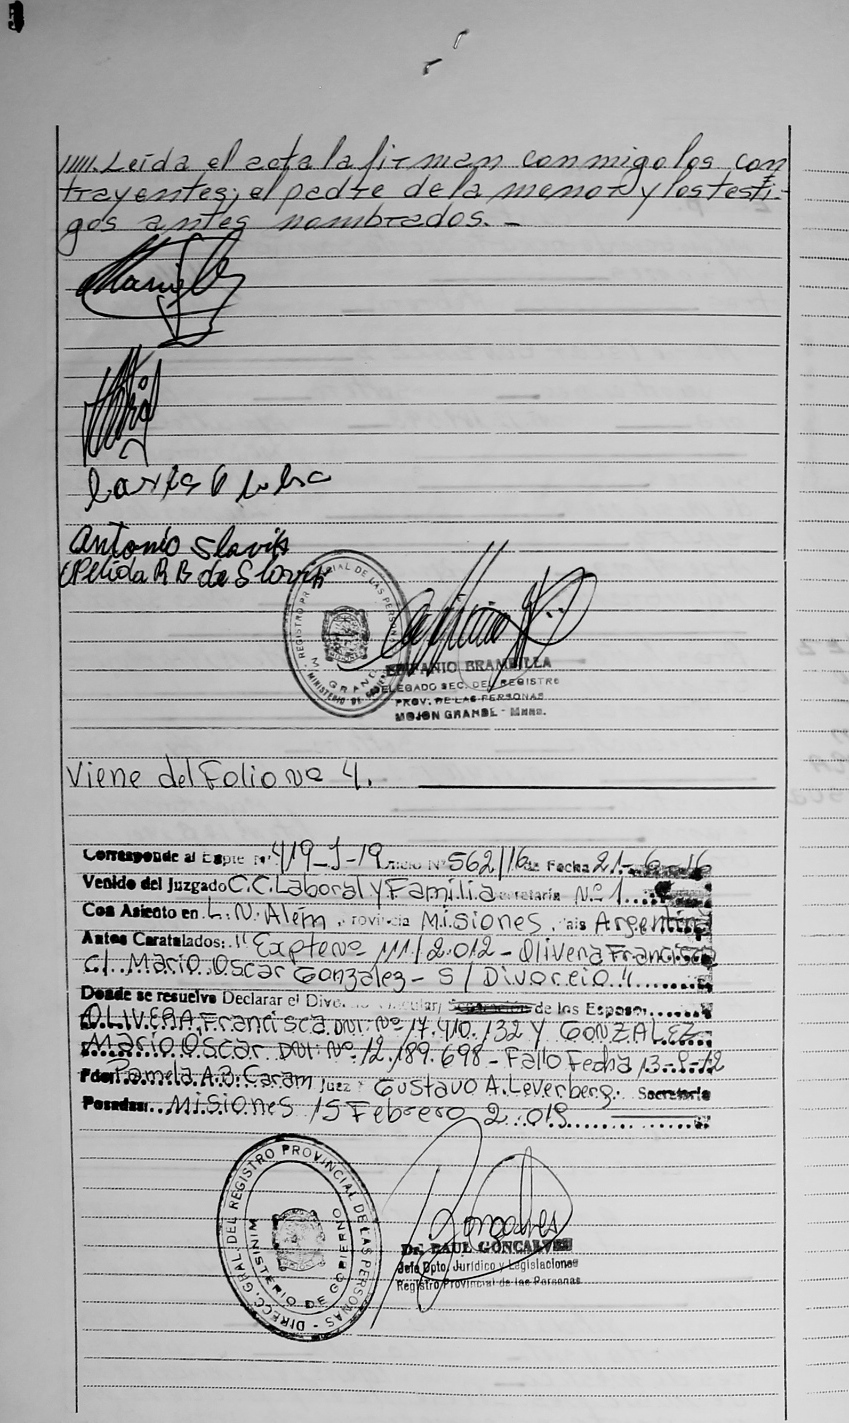 ///// Leída el acta la firman conmigo los con
trayentes, el padre de la menor y los testi-
gos antes nombrados. -
Antonio Slavik
Elida R B de Slavik
REGISTRO PROVINCIAL DE LAS PERSONAS
MINISTERIO DE GOBIERNO
M. GRANDE
EPIFANIO BRAMBILLA
DELEGADO SEC. DEL REGISTRO
PROV. DE LAS PERSONAS
MOJON GRANDE - Mnes.
Viene del Folio Nº 4.
Corresponde al Expte Nº 419-J-19 Oficio Nº 562/16 de Fecha 21-6-16
Venido del Juzgado C.C. Laboral y Familia Secretaría Nº 1
Con Asiento en L.N. Além Provincia Misiones País Argentina
Autos Caratulados: "Expte Nº 111/2.012 - Olivera Francisca
c/ Mario Oscar Gonzalez - S/ Divorcio"
Donde se resuelve Declarar el Divorcio Vincular/ Separación de los Esposos
OLIVERA, Francisca DNI: Nº 17.410.132 Y GONZALEZ
Mario Oscar DNI: Nº 12.189.698 - Fallo Fecha 13-9-12
Fdo: Pamela A.B. Caram Juez: Gustavo A. Leverberg. Secretario
Posadas: Misiones 15 Febrero 2.019
DIRECC. GRAL. DEL REGISTRO PROVINCIAL DE LAS PERSONAS
MINISTERIO DE GOBIERNO
Goncalves
Dr. RAUL GONCALVES
Jefe Dpto. Jurídico y Legislaciones
Registro Provincial de las Personas